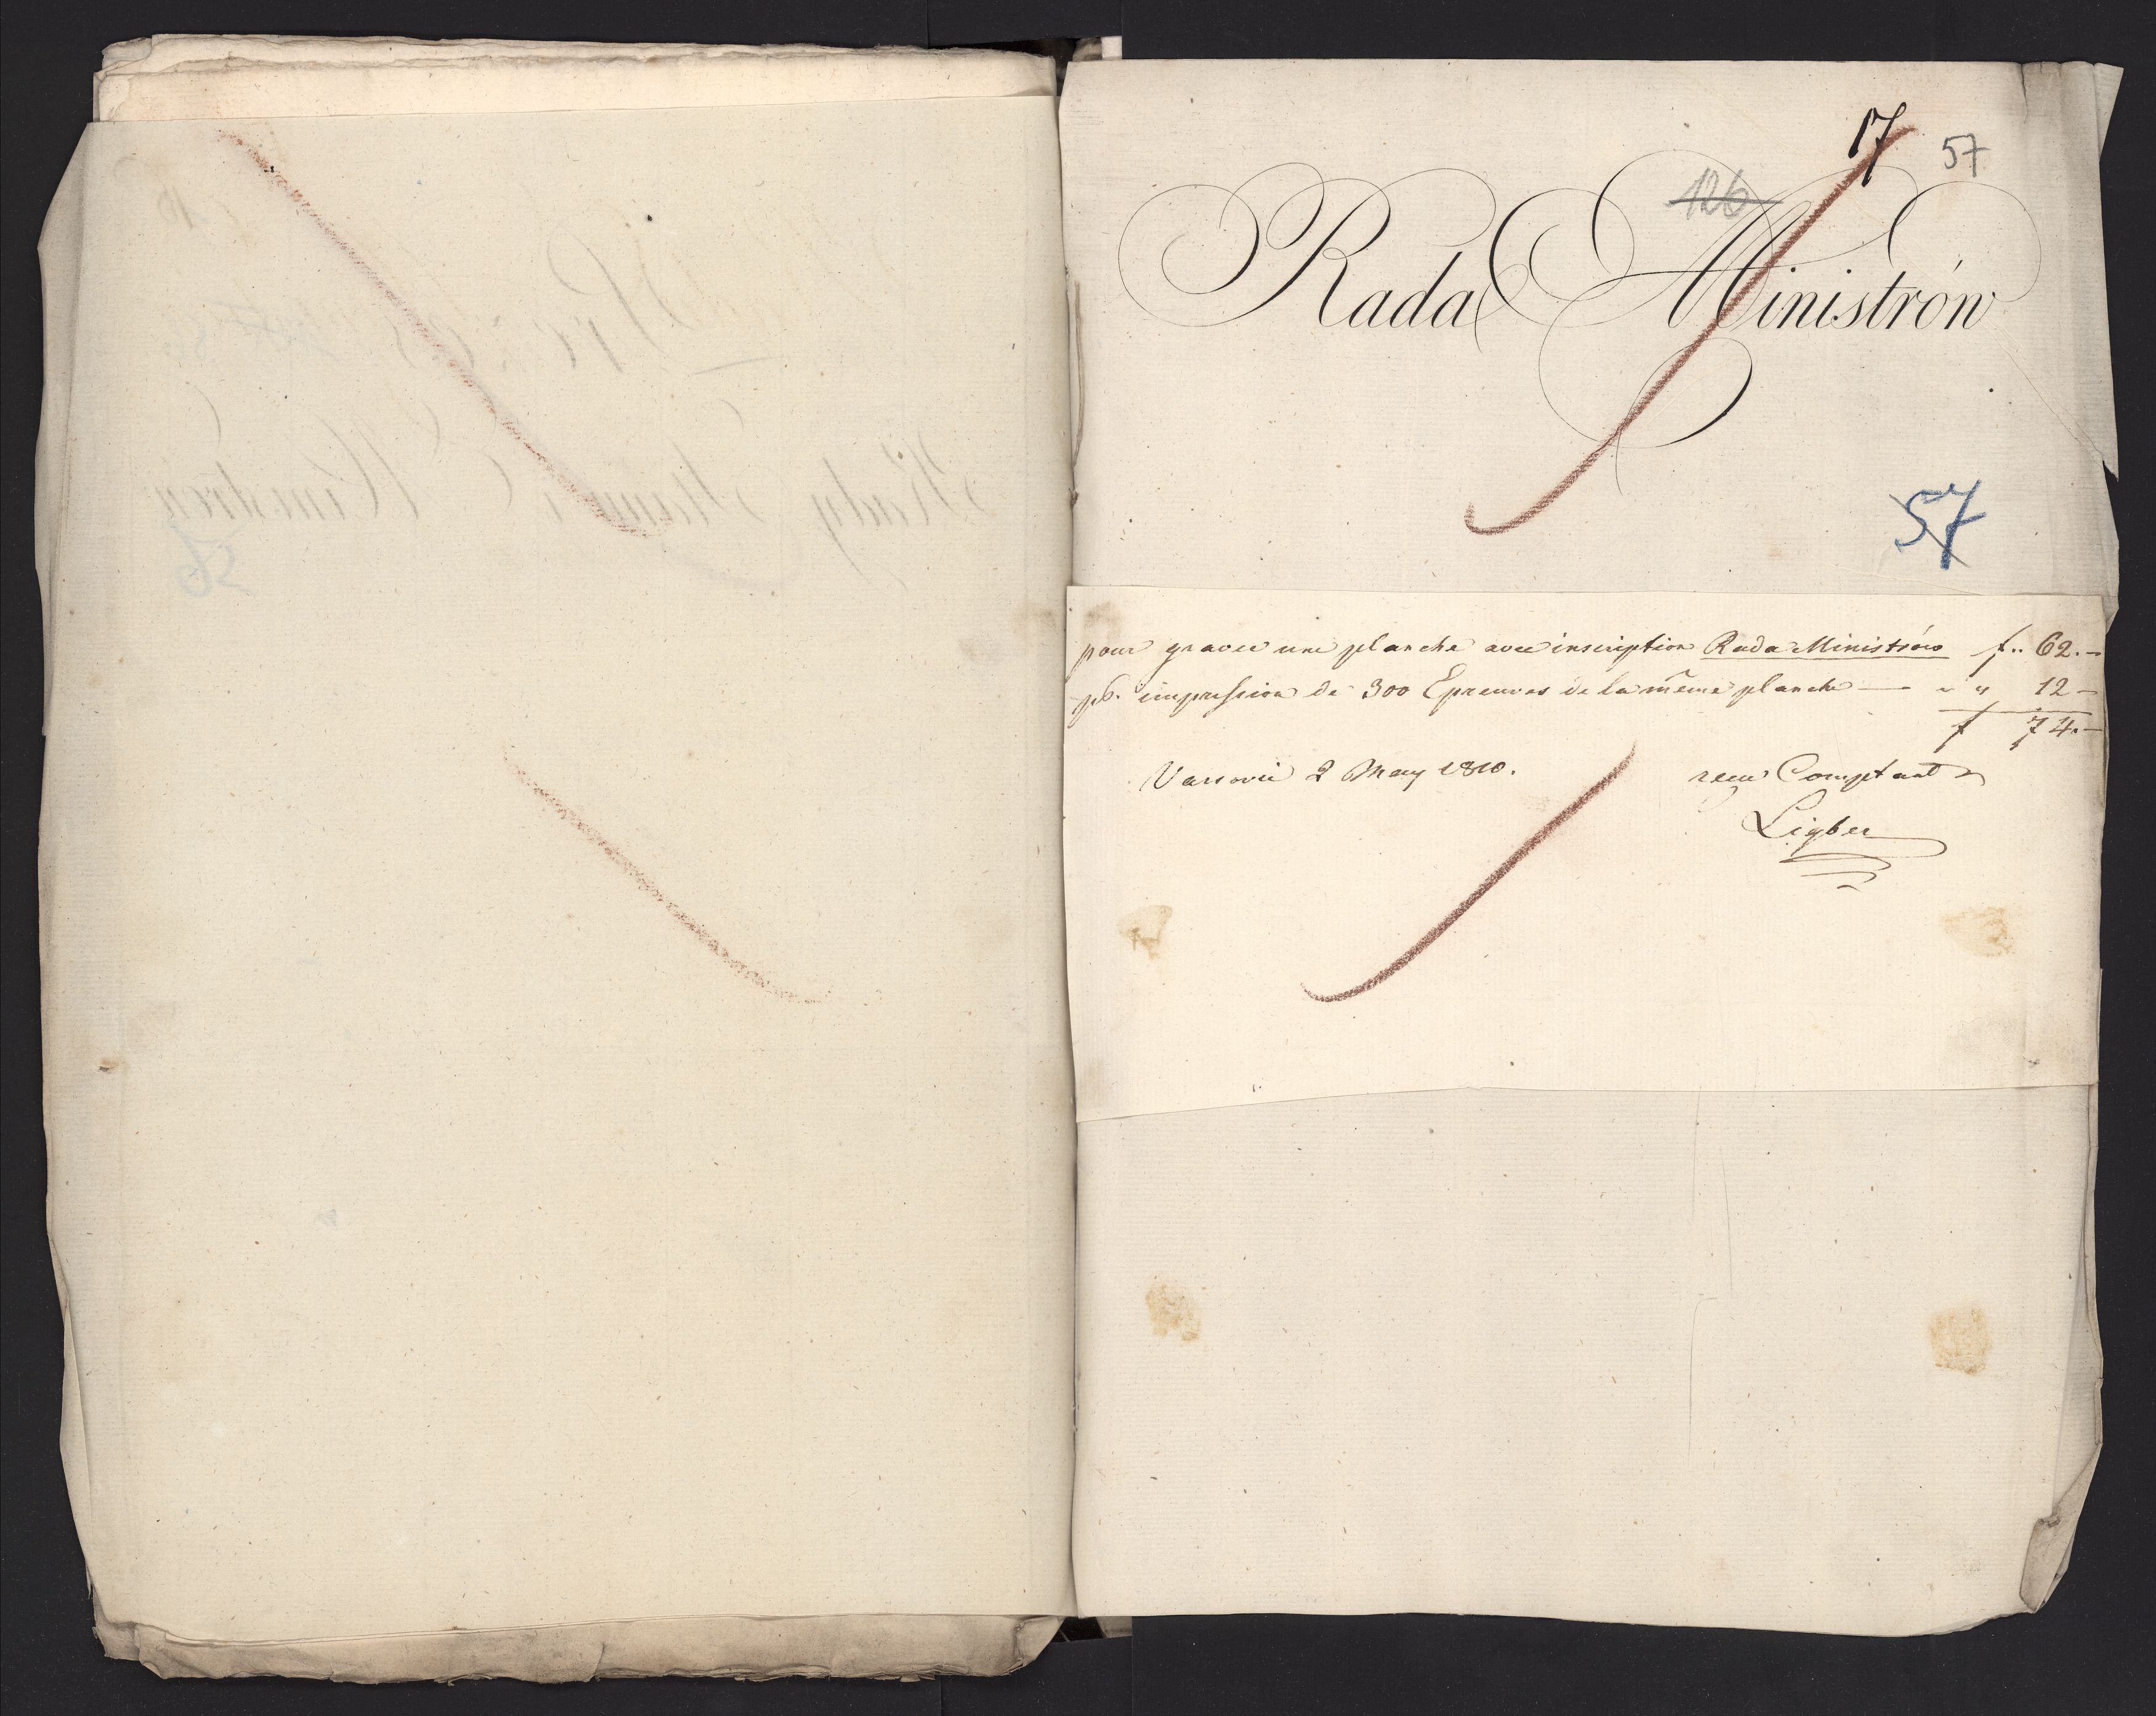 17
57
126
Rada Ministrów
57
pour graver une planche avec inscription Rada Ministrów f.. 62.-
impression de 300 Epreuves de la même planche — " " 12 -
f 74.-
Varsovie 2 May 1810.
recu Comptant
Ligber